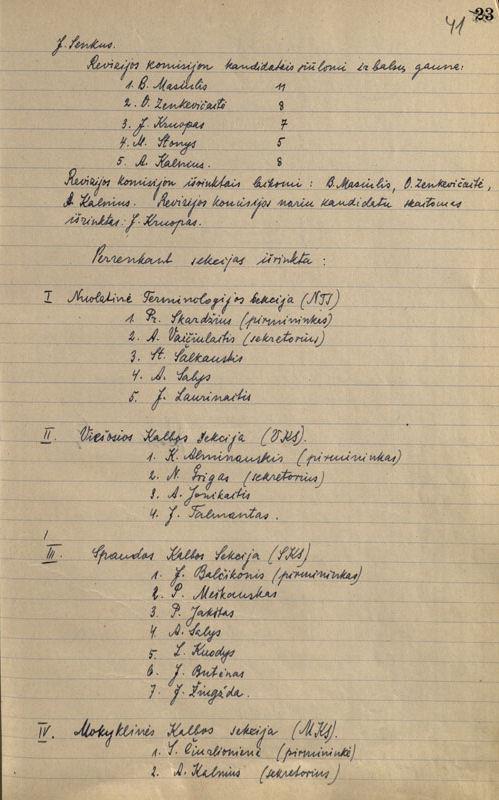 41 23
J. Senkus.
Revizijos komisijon kandidatais siūlomi ir balsų gauna:
1. B. Masiulis 11
2. O. Zenkevičaitė 8
3. J. Kruopas 7
4. M. Stonys 5
5. A. Kalnius. 8
Revizijos komisijon išrinktais laikomi: B. Masiulis, O. Zenkevičaitė,
A. Kalnius. Revizijos komisijos nariu kandidatu skaitomas
išrinktas: J. Kruopas.
Perrenkant sekcijas išrinkta:
I Nuolatinė Terminologijos Sekcija (NTS)
1. Pr. Skardžius (pirmininkas)
2. A. Vaičiulaitis (sekretorius)
3. St. Šalkauskis
4. A. Salys
5. J. Laurinaitis
II. Viešosios Kalbos Sekcija (VKS).
1. K. Alminauskis (pirmininkas)
2. N. Grigas (sekretorius)
3. A. Jonikaitis
4. J. Talmantas.
III. Spaudos Kalbos Sekcija (SKS)
1. J. Balčikonis (pirmininkas)
2. P. Meškauskas
3. P. Jakštas
4. A. Salys
5. L. Kuodys
6. J. Butėnas
7. J. Žiugžda.
IV. Mokyklinės Kalbos sekcija (MKS).
1. S. Čiurlionienė (pirmininkė)
2. A. Kalnius (sekretorius)